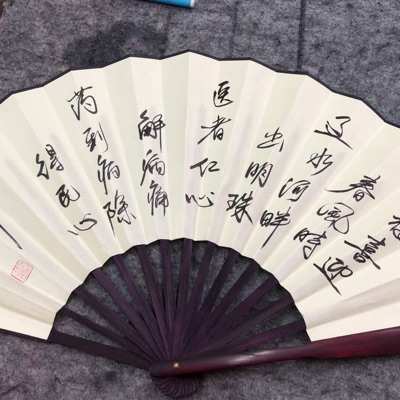 喜迎
春风时
辽水河畔
出明珠
医者仁心
解病痛
药到病除
得民心